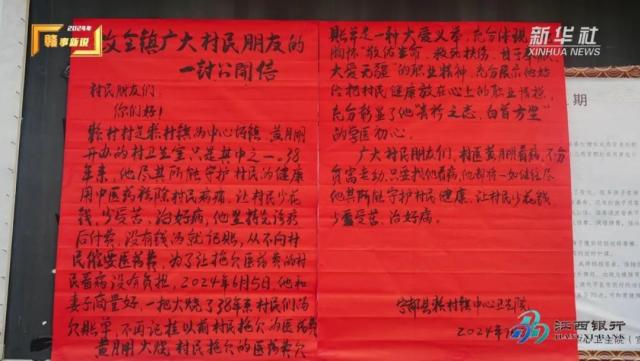 2024年
赣事新说
新华社
致全镇广大村民朋友的
一封公开信
村民朋友们:
你们好!
赖村村是赖村镇的中心圩镇,黄月朋
开办的村卫生室只是其中之一。38
年来,他尽其所能守护村民的健康
用中医药祛除村民病痛,让村民少花
钱,少受苦,治好病,他坚持先诊疗
后付费,没有钱的就记账,从不向村
民催要医药费,为了让拖欠医药费的村
民看病没有负担,2024年6月5日,他和
妻子商量好,一把火烧了38年来村民们的
欠账单,不再记挂以前村民拖欠的医药费
黄月朋火烧村民拖欠的医药费欠
账单是一种大爱义举,充分体现
胸怀"敬佑生命,救死扶伤,甘于奉献
大爱无疆"的职业精神,充分展示他始
终把村民健康放在心上的职业情操,
充分彰显了他青衿之志,白首方坚
的学医初心。
广大村民朋友们,村医黄月朋看病,不分
贫富老幼,只要找他看病,他都将一如既往尽
他其所能守护村民健康,让村民少花钱
少受苦,治好病。
宁都县赖村镇中心卫生院
2024年
江西银行
期